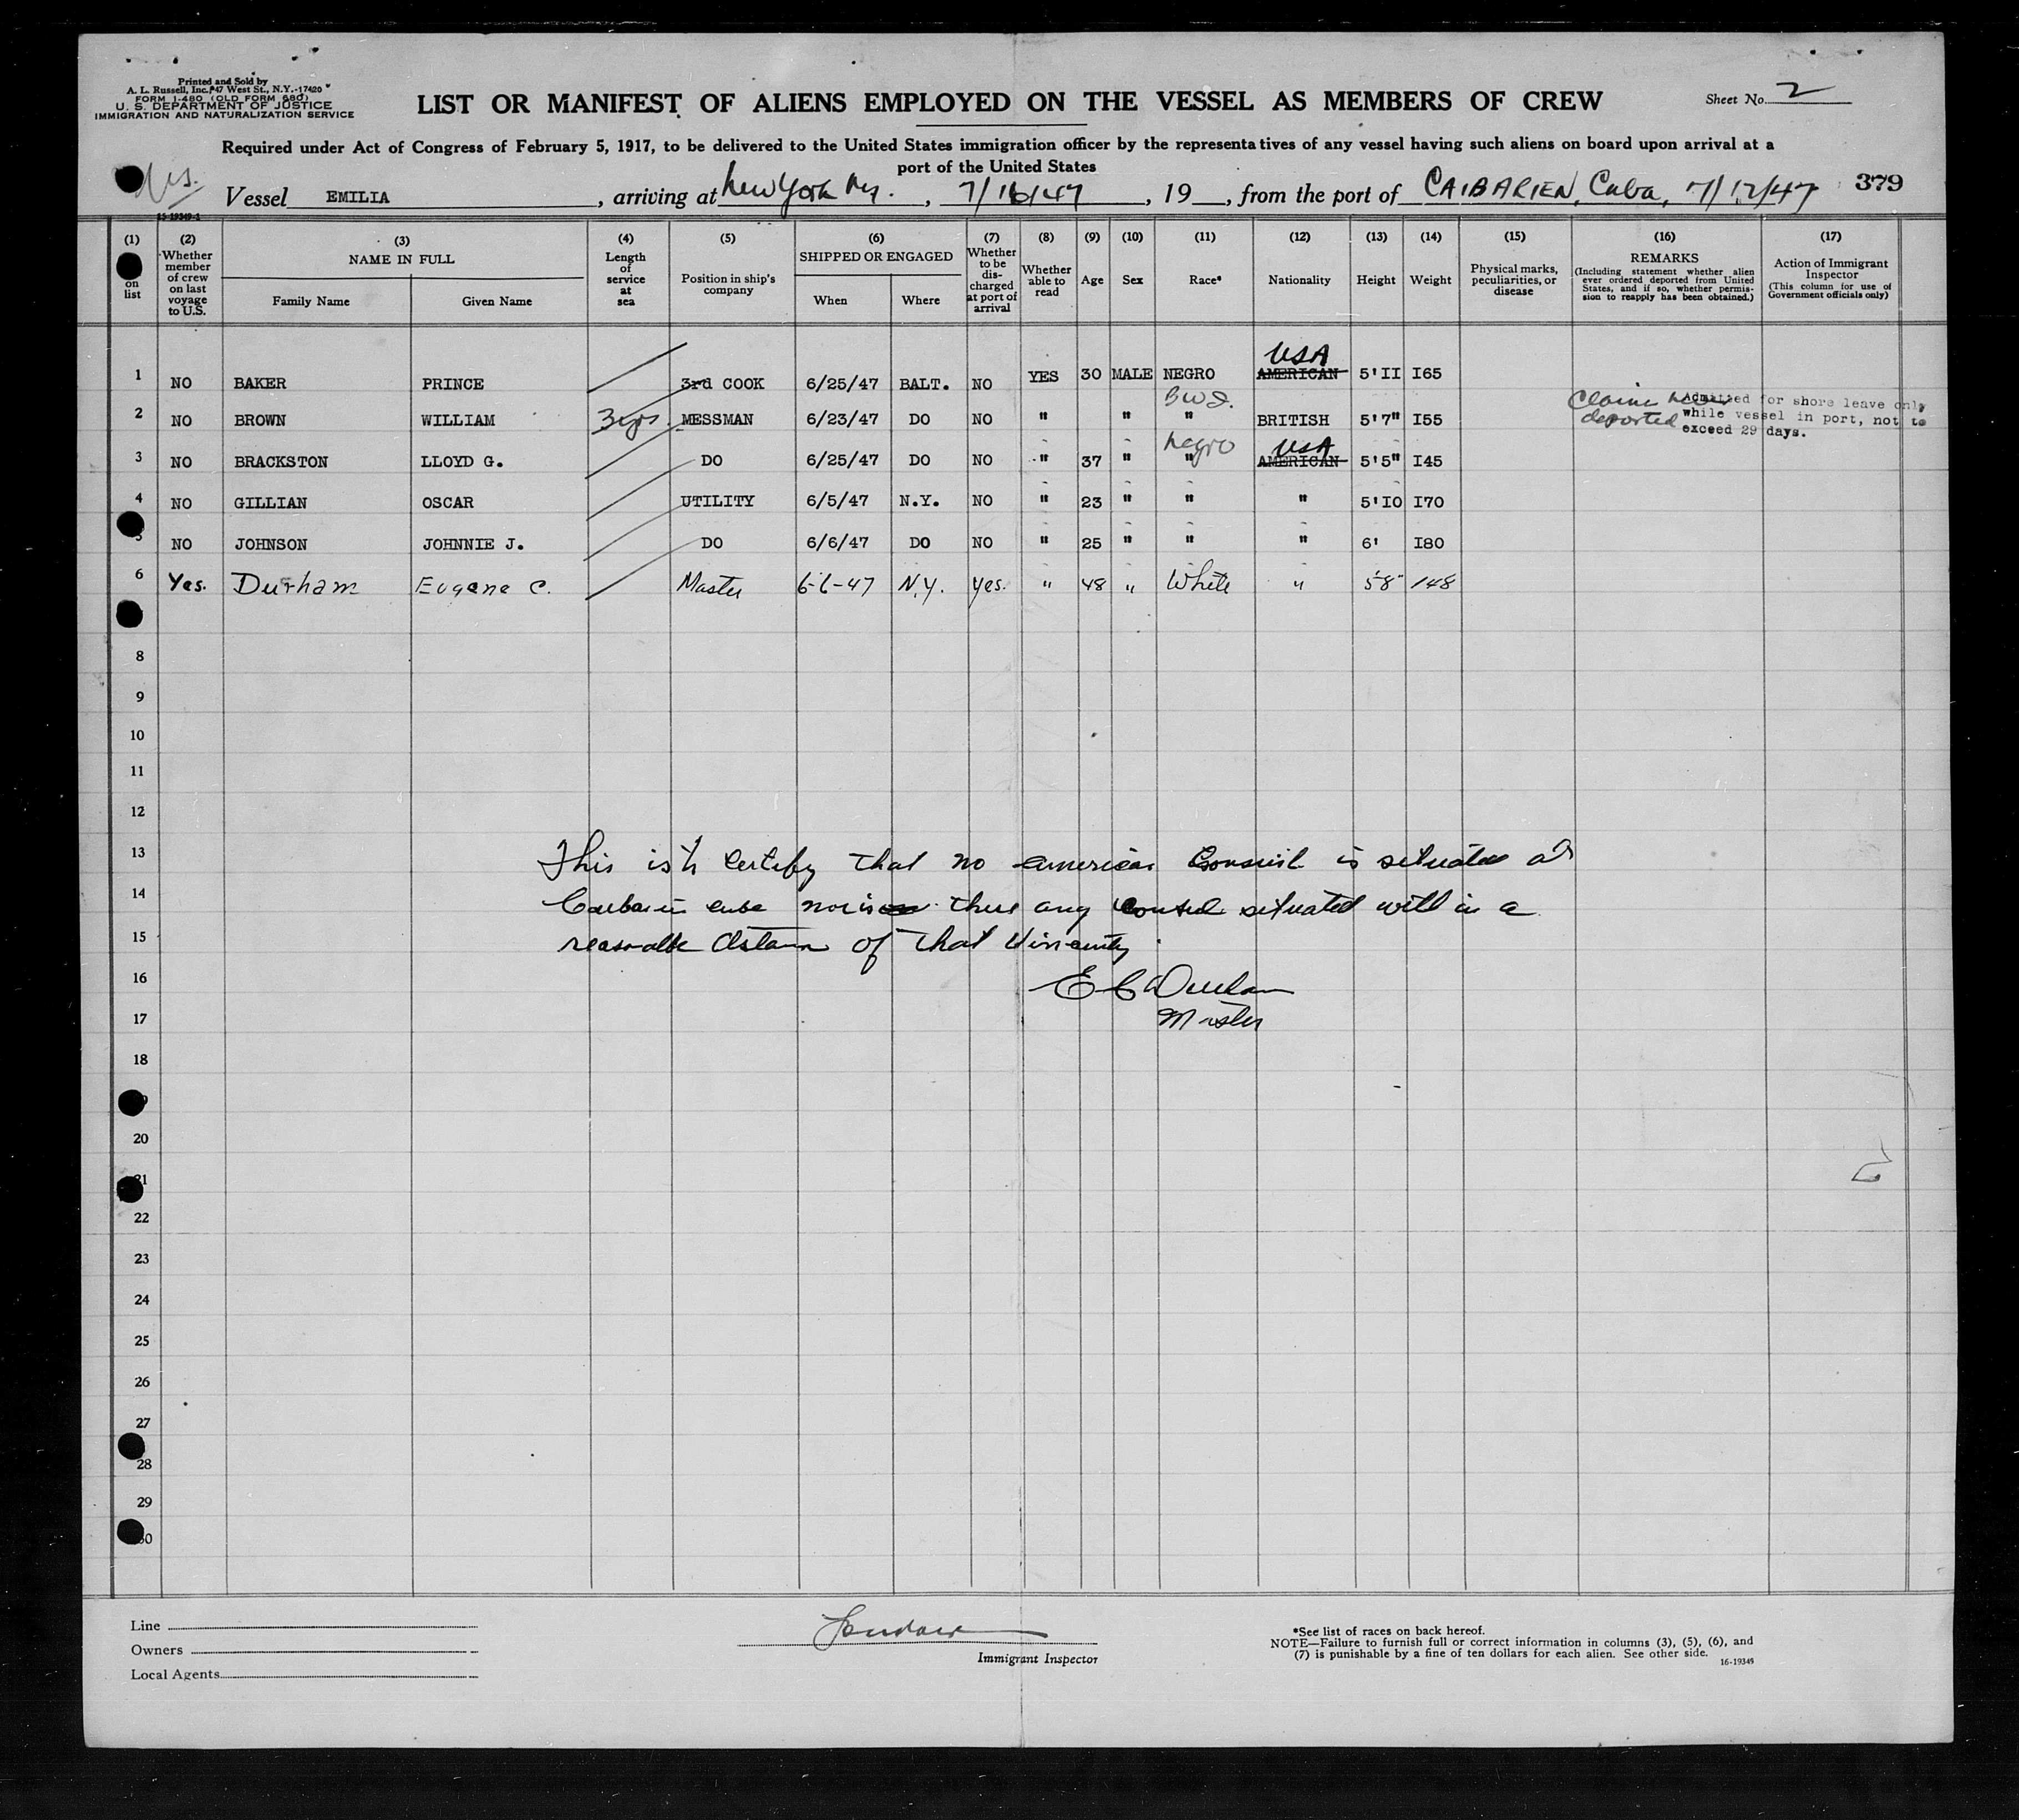 Printed and Sold by
A. L. Russell, Inc. 47 West St., N.Y.-17420
FORM I-480 (OLD FORM 680)
U. S. DEPARTMENT OF JUSTICE
IMMIGRATION AND NATURALIZATION SERVICE
LIST OR MANIFEST OF ALIENS EMPLOYED ON THE VESSEL AS MEMBERS OF CREW
Sheet No. 2
Required under Act of Congress of February 5, 1917, to be delivered to the United States immigration officer by the representatives of any vessel having such aliens on board upon arrival at a
port of the United States
Vessel EMILIA, arriving at New York Ny., 7/16/47, 19__, from the port of CAIBARIEN, Cuba, 7/12/47 379
(1) on list
(2) Whether member of crew on last voyage to U.S.
(3) NAME IN FULL Family Name Given Name
(4) Length of service at sea
(5) Position in ship's company
(6) SHIPPED OR ENGAGED When Where
(7) Whether to be discharged at port of arrival
(8) Whether able to read
(9) Age
(10) Sex
(11) Race*
(12) Nationality
(13) Height
(14) Weight
(15) Physical marks, peculiarities, or disease
(16) REMARKS (Including statement whether alien ever ordered deported from United States, and if so, whether permission to reapply has been obtained.)
(17) Action of Immigrant Inspector (This column for use of Government officials only)
USA
1 NO BAKER PRINCE 3rd COOK 6/25/47 BALT. NO YES 30 MALE NEGRO AMERICAN 5'II I65
B W I.
2 NO BROWN WILLIAM 3 yrs. MESSMAN 6/23/47 DO NO " " " BRITISH 5'7" I55 Claims never deported Admitted for shore leave only while vessel in port, not to exceed 29 days.
Negro USA
3 NO BRACKSTON LLOYD G. DO 6/25/47 DO NO " 37 " " AMERICAN 5'5" I45
4 NO GILLIAN OSCAR UTILITY 6/5/47 N.Y. NO " 23 " " " 5'IO I70
5 NO JOHNSON JOHNNIE J. DO 6/6/47 DO NO " 25 " " " 6' I80
6 Yes. Durham Eugene C. Master 6-6-47 N.Y. Yes. " 48 " White " 5'8" 148
8
9
10
11
12
13 This is to certify that no american Consul is situated at
14 Caibarien cuba nor is there any consul situated with in a
15 reasonable distance of that vicinity.
16 E C Durham
17 Master
18
20
21
22
23
24
25
26
27
28
29
30
Line
Owners
Local Agents
Immigrant Inspector
*See list of races on back hereof.
NOTE—Failure to furnish full or correct information in columns (3), (5), (6), and
(7) is punishable by a fine of ten dollars for each alien. See other side.
16-19349